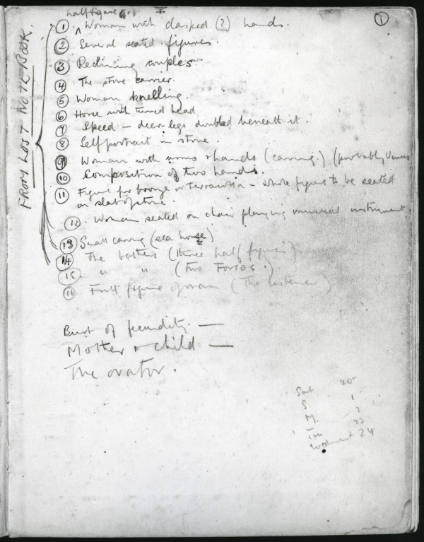 half figure
① Woman with clasped (?) hands.
② Several seated figures.
③ Reclining couples
④ The stone carrier.
⑤ Woman kneeling.
⑥ Horse with turned head
⑦ Speed – deer legs doubled beneath it.
⑧ Self portrait in stone.
⑨ Woman with arms + hands (carving.) (probably Venus
⑩ Composition of two hands.
⑪ Figure for bronze or terracotta – whole figure to be seated
on slab of stone.
⑫ Woman seated on chair playing musical instrument
⑬ Small carving (sea horse)
⑭ The bathers (three half figures)
⑮ " " (Two Torsos.)
⑯ Full figure of man (The listener)
Bust of fecundity —
Mother + child —
The orator.
FROM LOST NOTE BOOK
①
Sat 20
S 1
M.